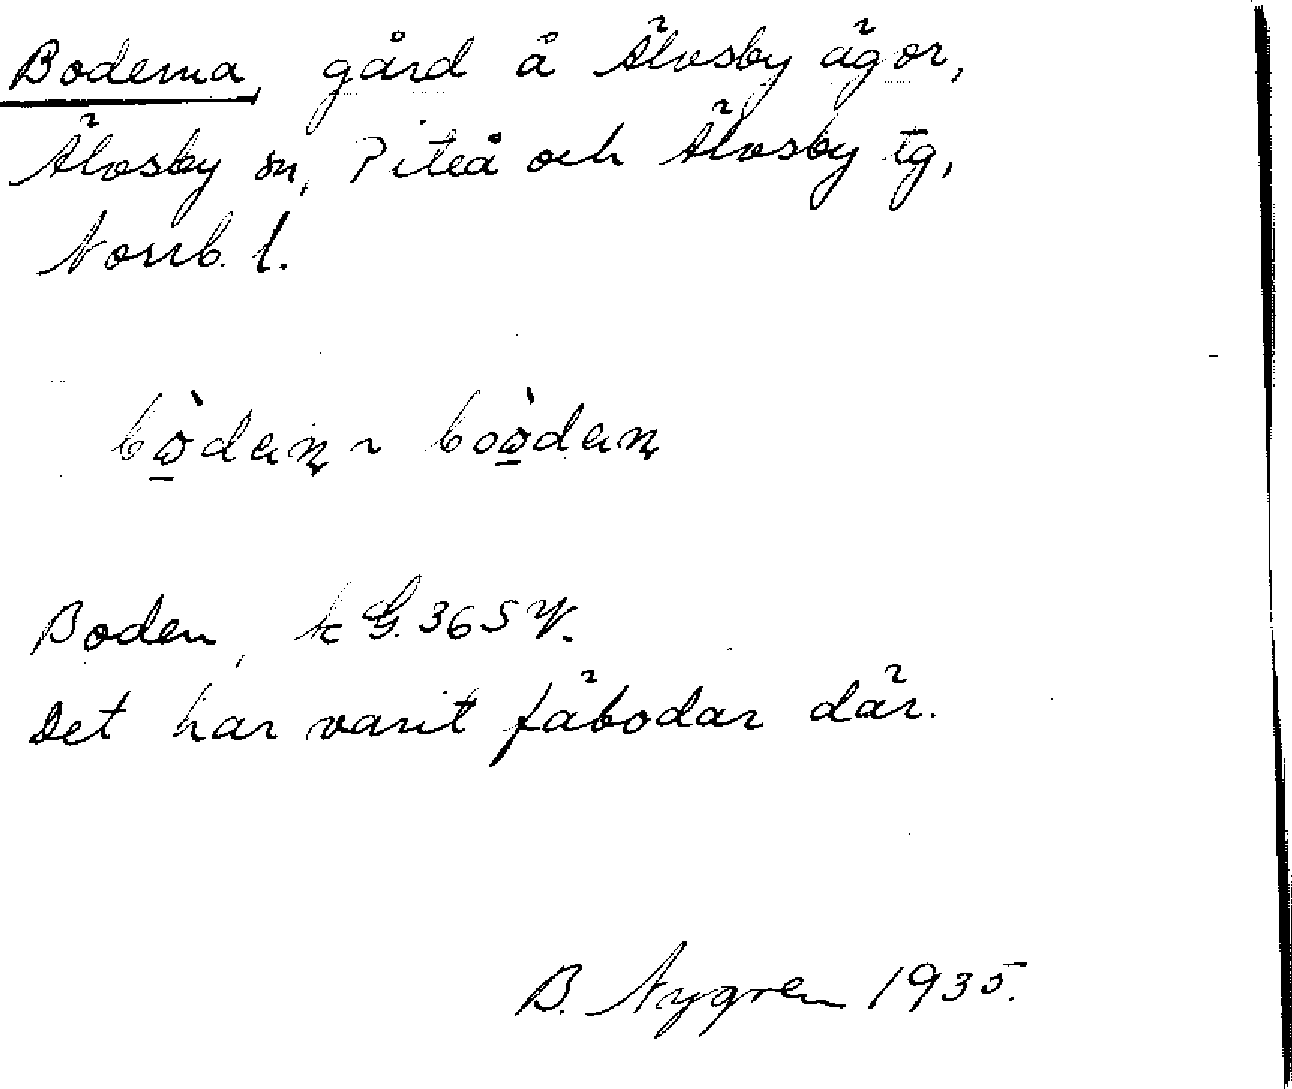 Boderna, gård å Älvsby ägor,
Älvsby sn, Piteå och Älvsby tg,
Norrb. l.
Boden, k G.365 V.
Det har varit fäbodar där.
B. Nygren 1935.